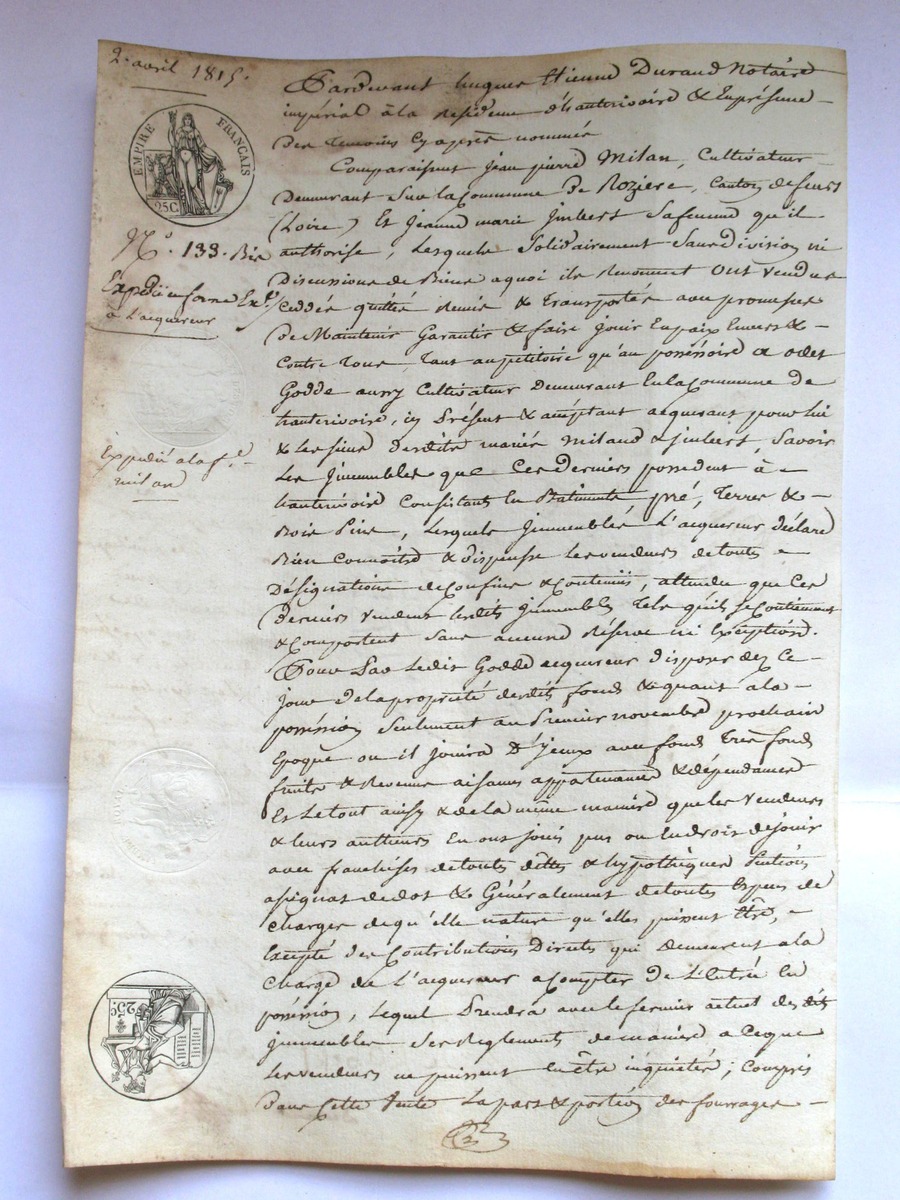 2. avril 1815.
EMPIRE FRANÇAIS
25 C.
N.º 133. Bis
Expédié en forme Ex.re
à L'acquereur
Expédié a la fe.
milan
25 C.
Pardevant hugues Etienne Durand Notaire
impérial à la Résidence d'hauterivoire & En présence
Des temoins Cy après nommés
Comparaissent jean pierre Milan, Cultivateur
Demeurant Sur la Commune de Roziere, Canton de feurs
(Loire) Et Jeanne marie jmbert Sa femme qu'il
authorise, Lesquels Solidairement Sans division ni
Discussions de Biens a quoi ils Renoncent Ont vendus
Ceddés quittés Remis & Transportés avec promesse
De Maintenir Garantir & faire jouir En paix Envers &
Contre Tous, Tant au petitoire qu'au posséssoire a
Godde aussy Cultivateur Demeurant En la Commune de
hauterivoire, ici Présent & acceptant acquerant pour lui
& Les siens desdits mariés Miland & jmbert, Savoir
Les jmmeubles que Ces Derniers possedent à
hauterivoire Consistants En Batiments, pré, Terres &
Bois Pins, Lesquels jmmeubles L'acquereur Déclare
Bien Connoitre & dispense Les vendeurs de toutes
Désignations de Confins & Contenus, attendu que Ces
Derniers vendent Lesdits jmmeubles Tels qu'ils se Contiennent
& Comportent Sans aucune Réserve ni Exception.
Pour Par Ledit Godde acquereur disposer dez Ce
jour de la propriété desdits fonds & quant a la
posséssion Seulement au Premier novembre prochain
Epoque ou il jouira D'jceux avec fonds Très fonds
fruits & Revenus aisances appartenances & dépendances
Et Le tout ainsy & de la même maniere que les Vendeurs
& leurs autheurs En ont jouis pus ou eu droit de jouir
avec franchises de toutes dettes & hypothèques
assignat de dot & Généralement de toutes Especes de
Charges de qu'elle nature qu'elles puissent Etre,
Excepté des Contributions Directes qui Demeurent a la
Charge de L'acquereur a Compter de L'Entrée En
posséssion, Lequel Prendra avec le fermier actuel desdits
jmmeubles Ses Reglements de maniere a Ce que
Les vendeurs ne puissent En être inquietés; Compris
Dans Cette Vente La part & portion des fourrages